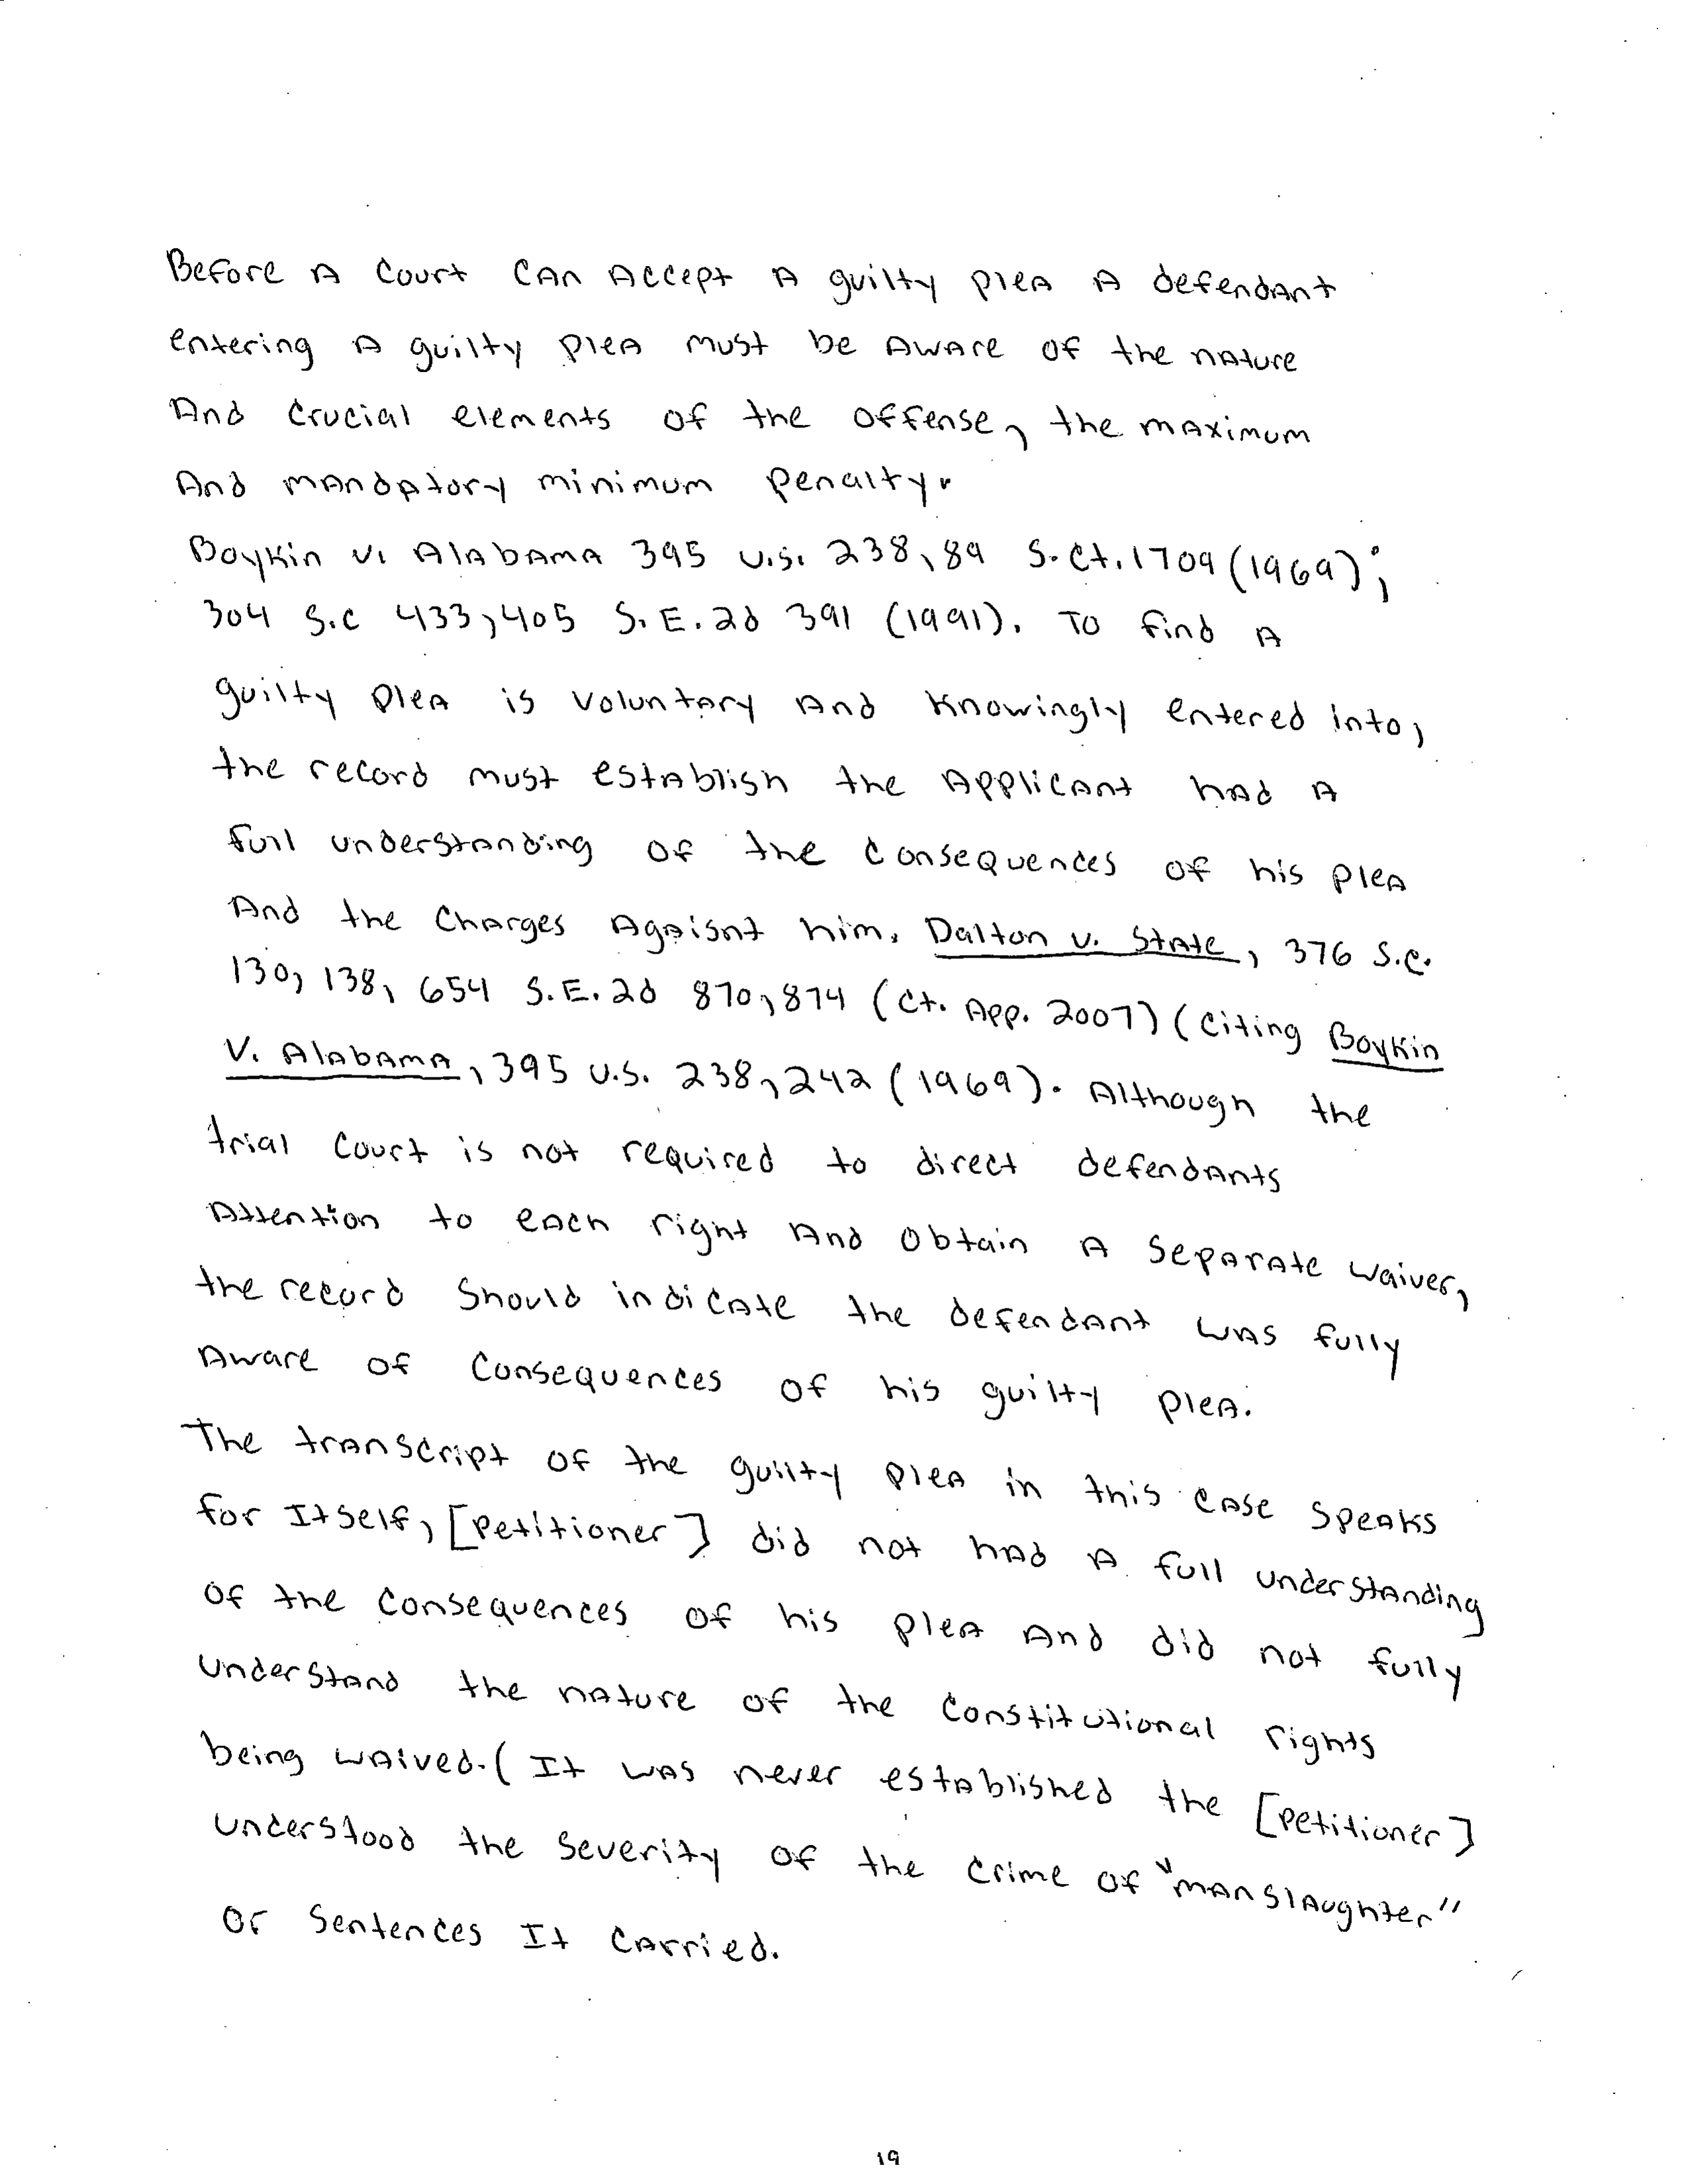 Before A Court CAn Accept A guilty pleA A defendAnt
entering A guilty pleA must be AwAre of the nAture
And Crucial elements of the offense, the mAximum
And mAndAtory minimum penalty.
Boykin v. AlAbAmA 395 U.S. 238, 89 S. Ct. 1709 (1969);
304 S.C 433, 405 S.E.2d 391 (1991). To find A
guilty pleA is voluntAry And Knowingly entered into,
the record must estAblish the ApplicAnt hAd A
full understAnding of the Consequences of his pleA
And the ChArges AgAisnt him. Dalton v. StAte, 376 S.C.
130, 138, 654 S.E.2d 870, 874 (Ct. App. 2007) (Citing Boykin
V. AlAbAmA, 395 U.S. 238, 242 (1969). Although the
trial Court is not required to direct defendAnts
Attention to eAch right And Obtain A SepArAte waiver,
the record Should indicAte the defendAnt wAs fully
Aware of Consequences of his guilty pleA.
The trAnscript of the guilty pleA in this CAse SpeAks
for ItSelf, [Petitioner] did not hAd A full understAnding
of the Consequences of his pleA And did not fully
understAnd the nAture of the Constitutional rights
being wAived. (It wAs never estAblished the [Petitioner]
understood the Severity of the Crime of "mAnslAughter"
or Sentences It CArried.
19